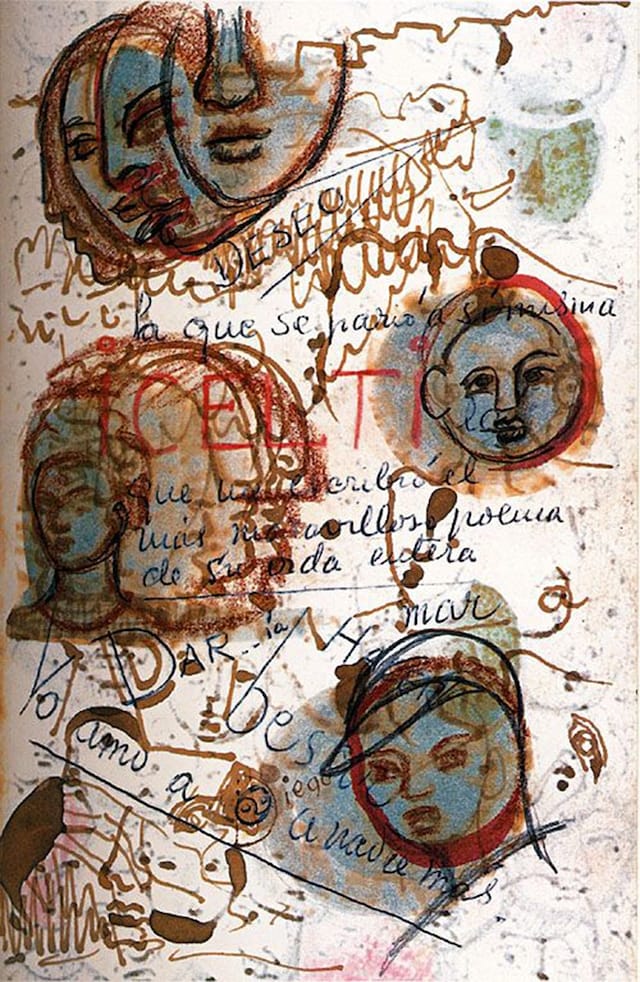 DESEO
la que se parió á sí misma
ICELTI
que me escribió el
más maravilloso poema
de su vida entera
mar
DAR..ía
yo
amo a Diego
a nadie más.